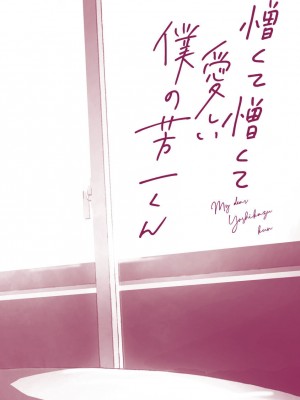 憎くて憎くて
愛しい
僕の芳一くん
My dear
Yoshikazu
kun